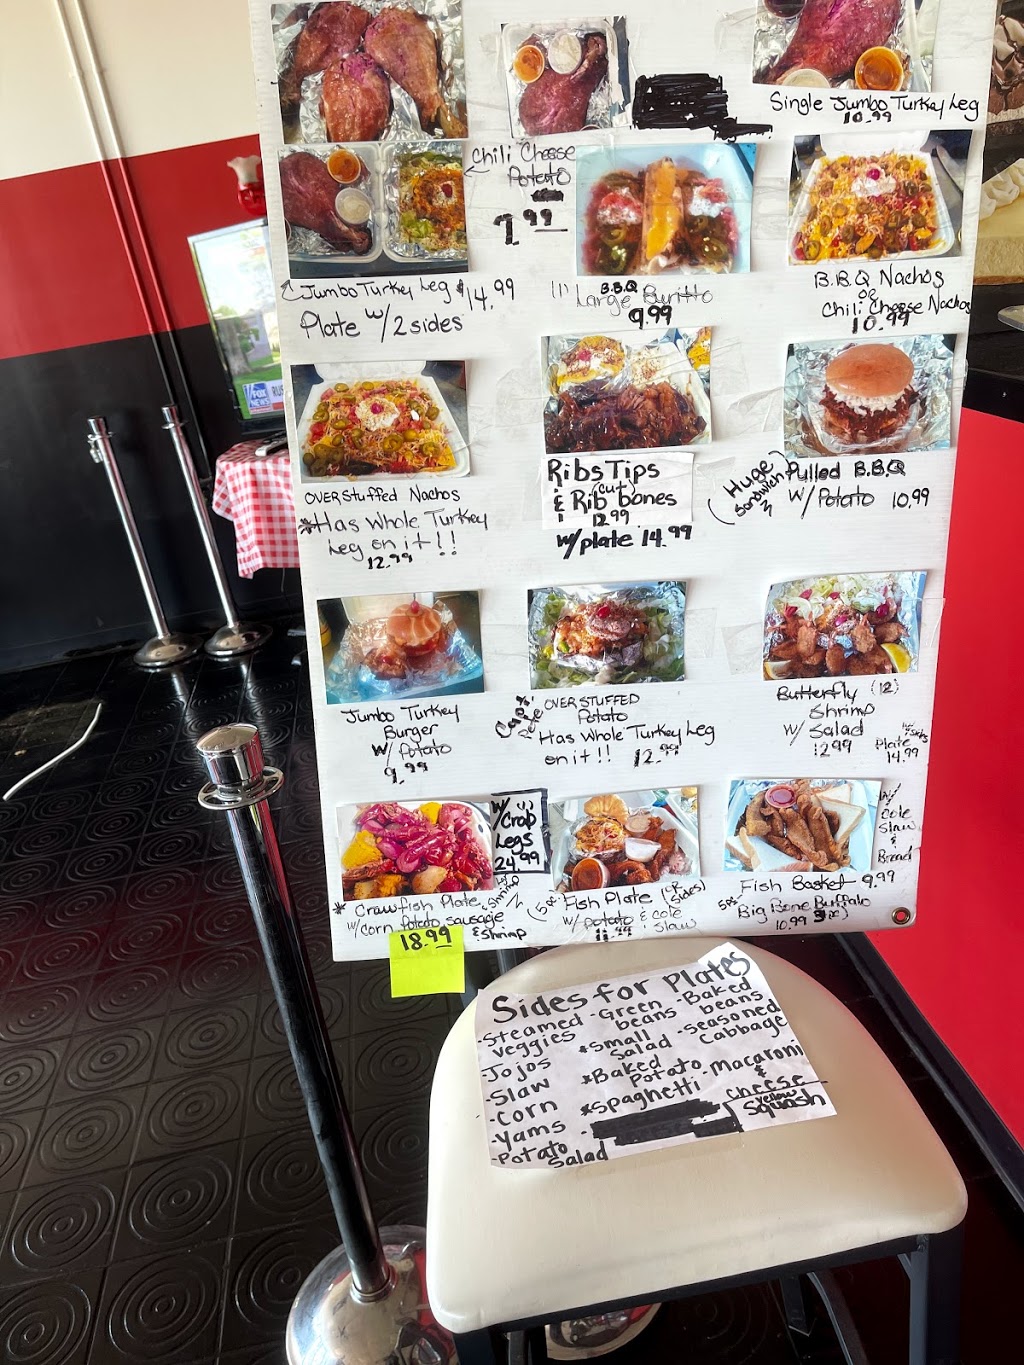 Single Jumbo Turkey Leg
10.99
Chili Cheese
Potato
7.99
Jumbo Turkey Leg $14.99
Plate w/ 2 sides
(1) B.B.Q
Large Burritto
9.99
B.B.Q Nachos
or
Chili Cheese Nachos
10.99
FOX
NEWS
OVERStuffed Nachos
*Has Whole Turkey
Leg on it!!
12.99
Ribs Tips
& (cut) Rib bones
12.99
w/plate 14.99
(Huge
Sandwich)
Pulled B.B.Q
W/ Potato 10.99
Jumbo Turkey
Burger
w/ Potato
9.99
OVERSTUFFED
Potato
Has Whole Turkey Leg
on it!! 12.99
Butterfly (12)
Shrimp
w/ Salad
12.99
Plate
14.99
w/ Crab
Legs
24.99
* Crawfish Plate
w/corn Potato sausage
& Shrimp
18.99
(5pc) Fish Plate (or Sides)
w/ Potato & cole
Slaw
11.99
w/
Cole
Slaw
&
Bread
Fish Basket 9.99
5pc Big Bone Buffalo
10.99
Sides for Plates
-Steamed
veggies
-Jojos
-Slaw
-Corn
-Yams
-Potato
Salad
-Green
beans
*Small
Salad
*Baked
Potato
*Spaghetti
-Baked
beans
-Seasoned
Cabbage
-Macaroni
&
cheese
Yellow
Squash